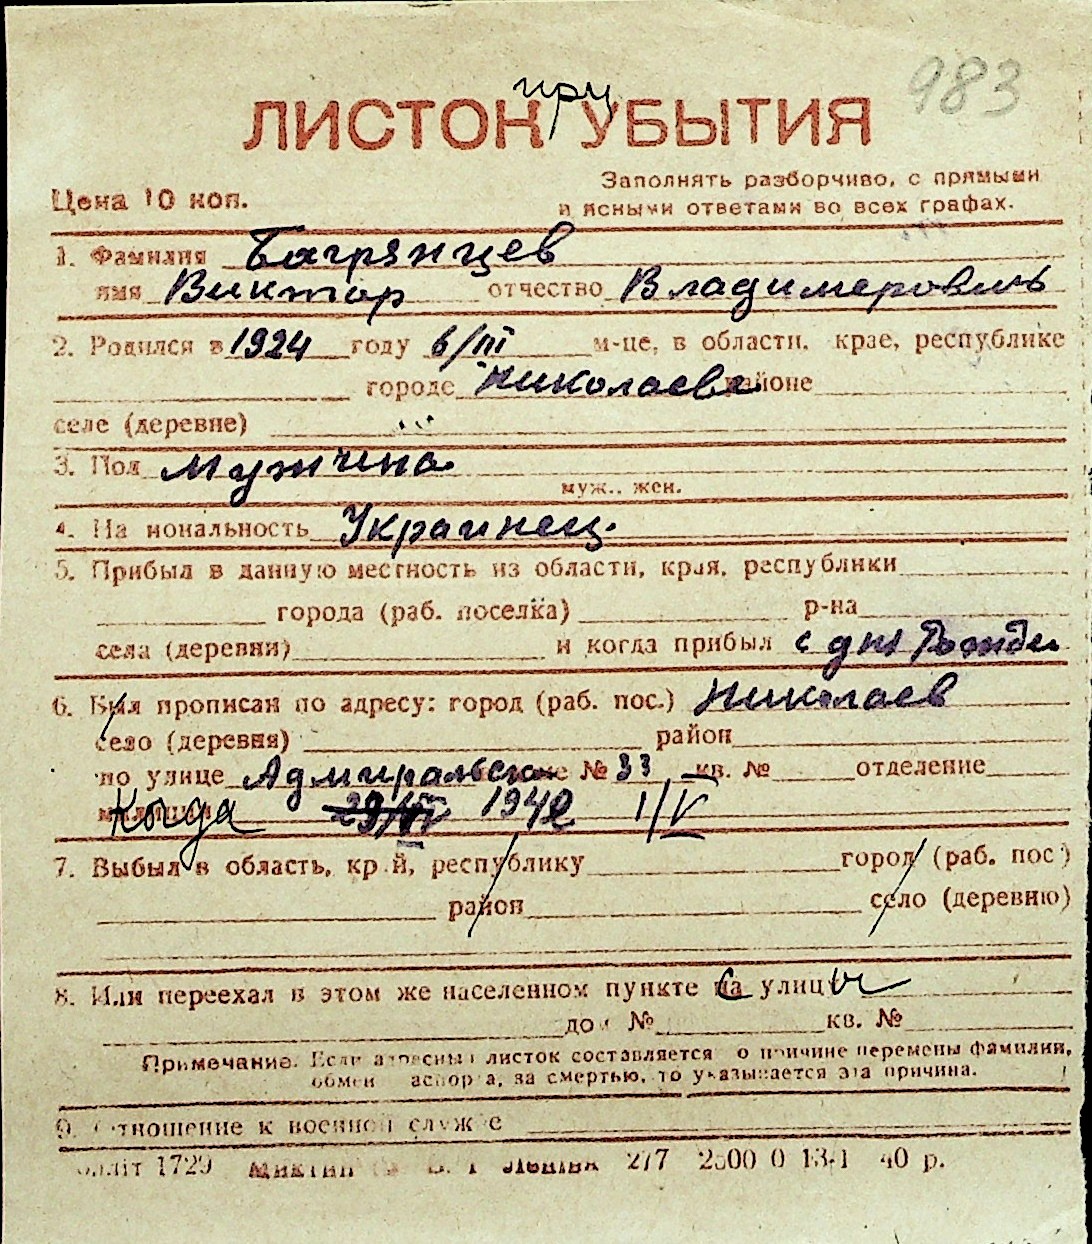 983
при
ЛИСТОК УБЫТИЯ
Цена 10 коп.
Заполнять разборчиво, с прямыми
и ясными ответами во всех графах.
1. Фамилия Багрянцев
имя Виктор отчество Владимерович
2. Родился в 1924 году 6/III м-це, в области, крае, республике
городе Николаеве районе
селе (деревне)
3. Пол мужчина
муж., жен.
4. На иональность Украинец.
5. Прибыл в данную местность из области, края, республики
города (раб. поселка) р-на
села (деревни) и когда прибыл с дня Рожде
6. Был прописан по адресу: город (раб. пос.) Николаев
село (деревня) район
по улице Адмиральская № 33 кв. № отделение
милиции Когда 1942 1/V
7. Выбыл в область, кр й, республику город (раб. пос )
район село (деревню)
8. Или переехал в этом же населенном пункте с улицы
до № кв. №
Примечание. Если адресны листок составляется о причине перемены фамилии,
обмен аспор а, за смертью, то указывается эта причина.
9. тношение к военной служ е
1729 277 40 р.